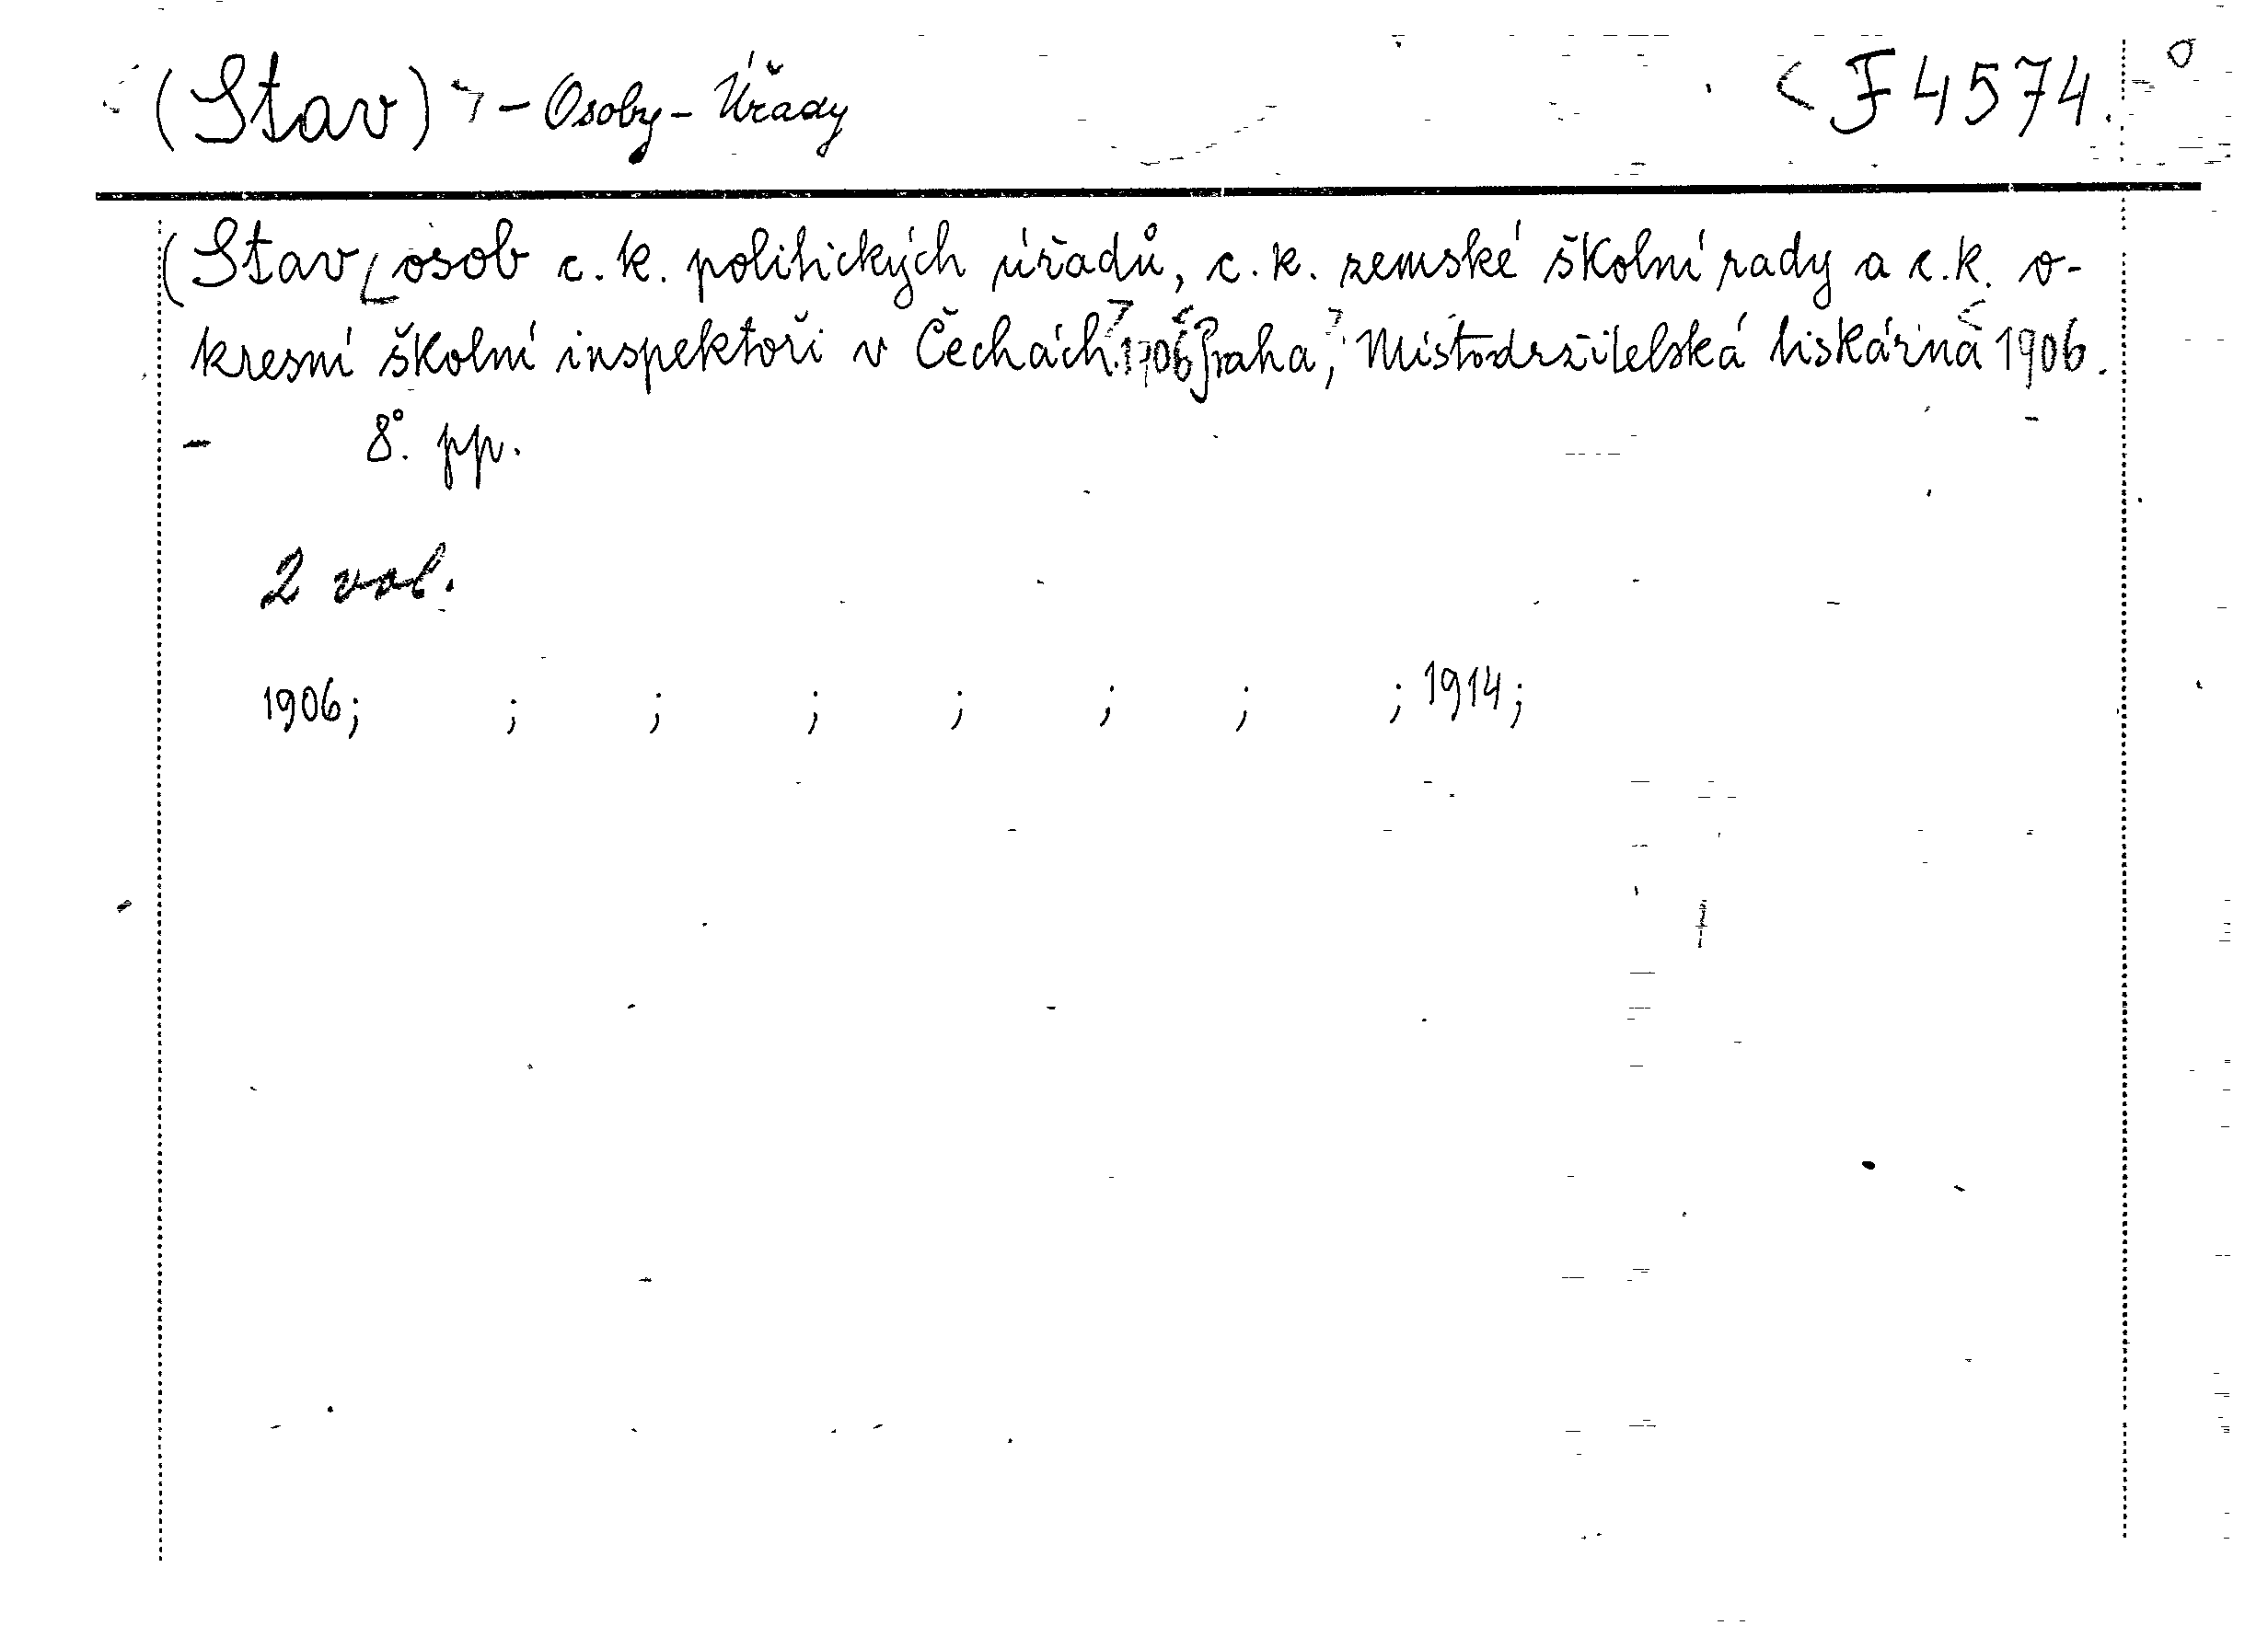 (Stav) - Osoby - Úřady F 4574.
(Stav osob c. k. politických úřadů, c. k. zemské školní rady a c. k. o-
kresní školní inspektoři v Čechách. 1906 Praha, Místodržitelská tiskárna 1906.
- 8°. pp.
2 vol.
1906; ; ; ; ; ; ; ; 1914;